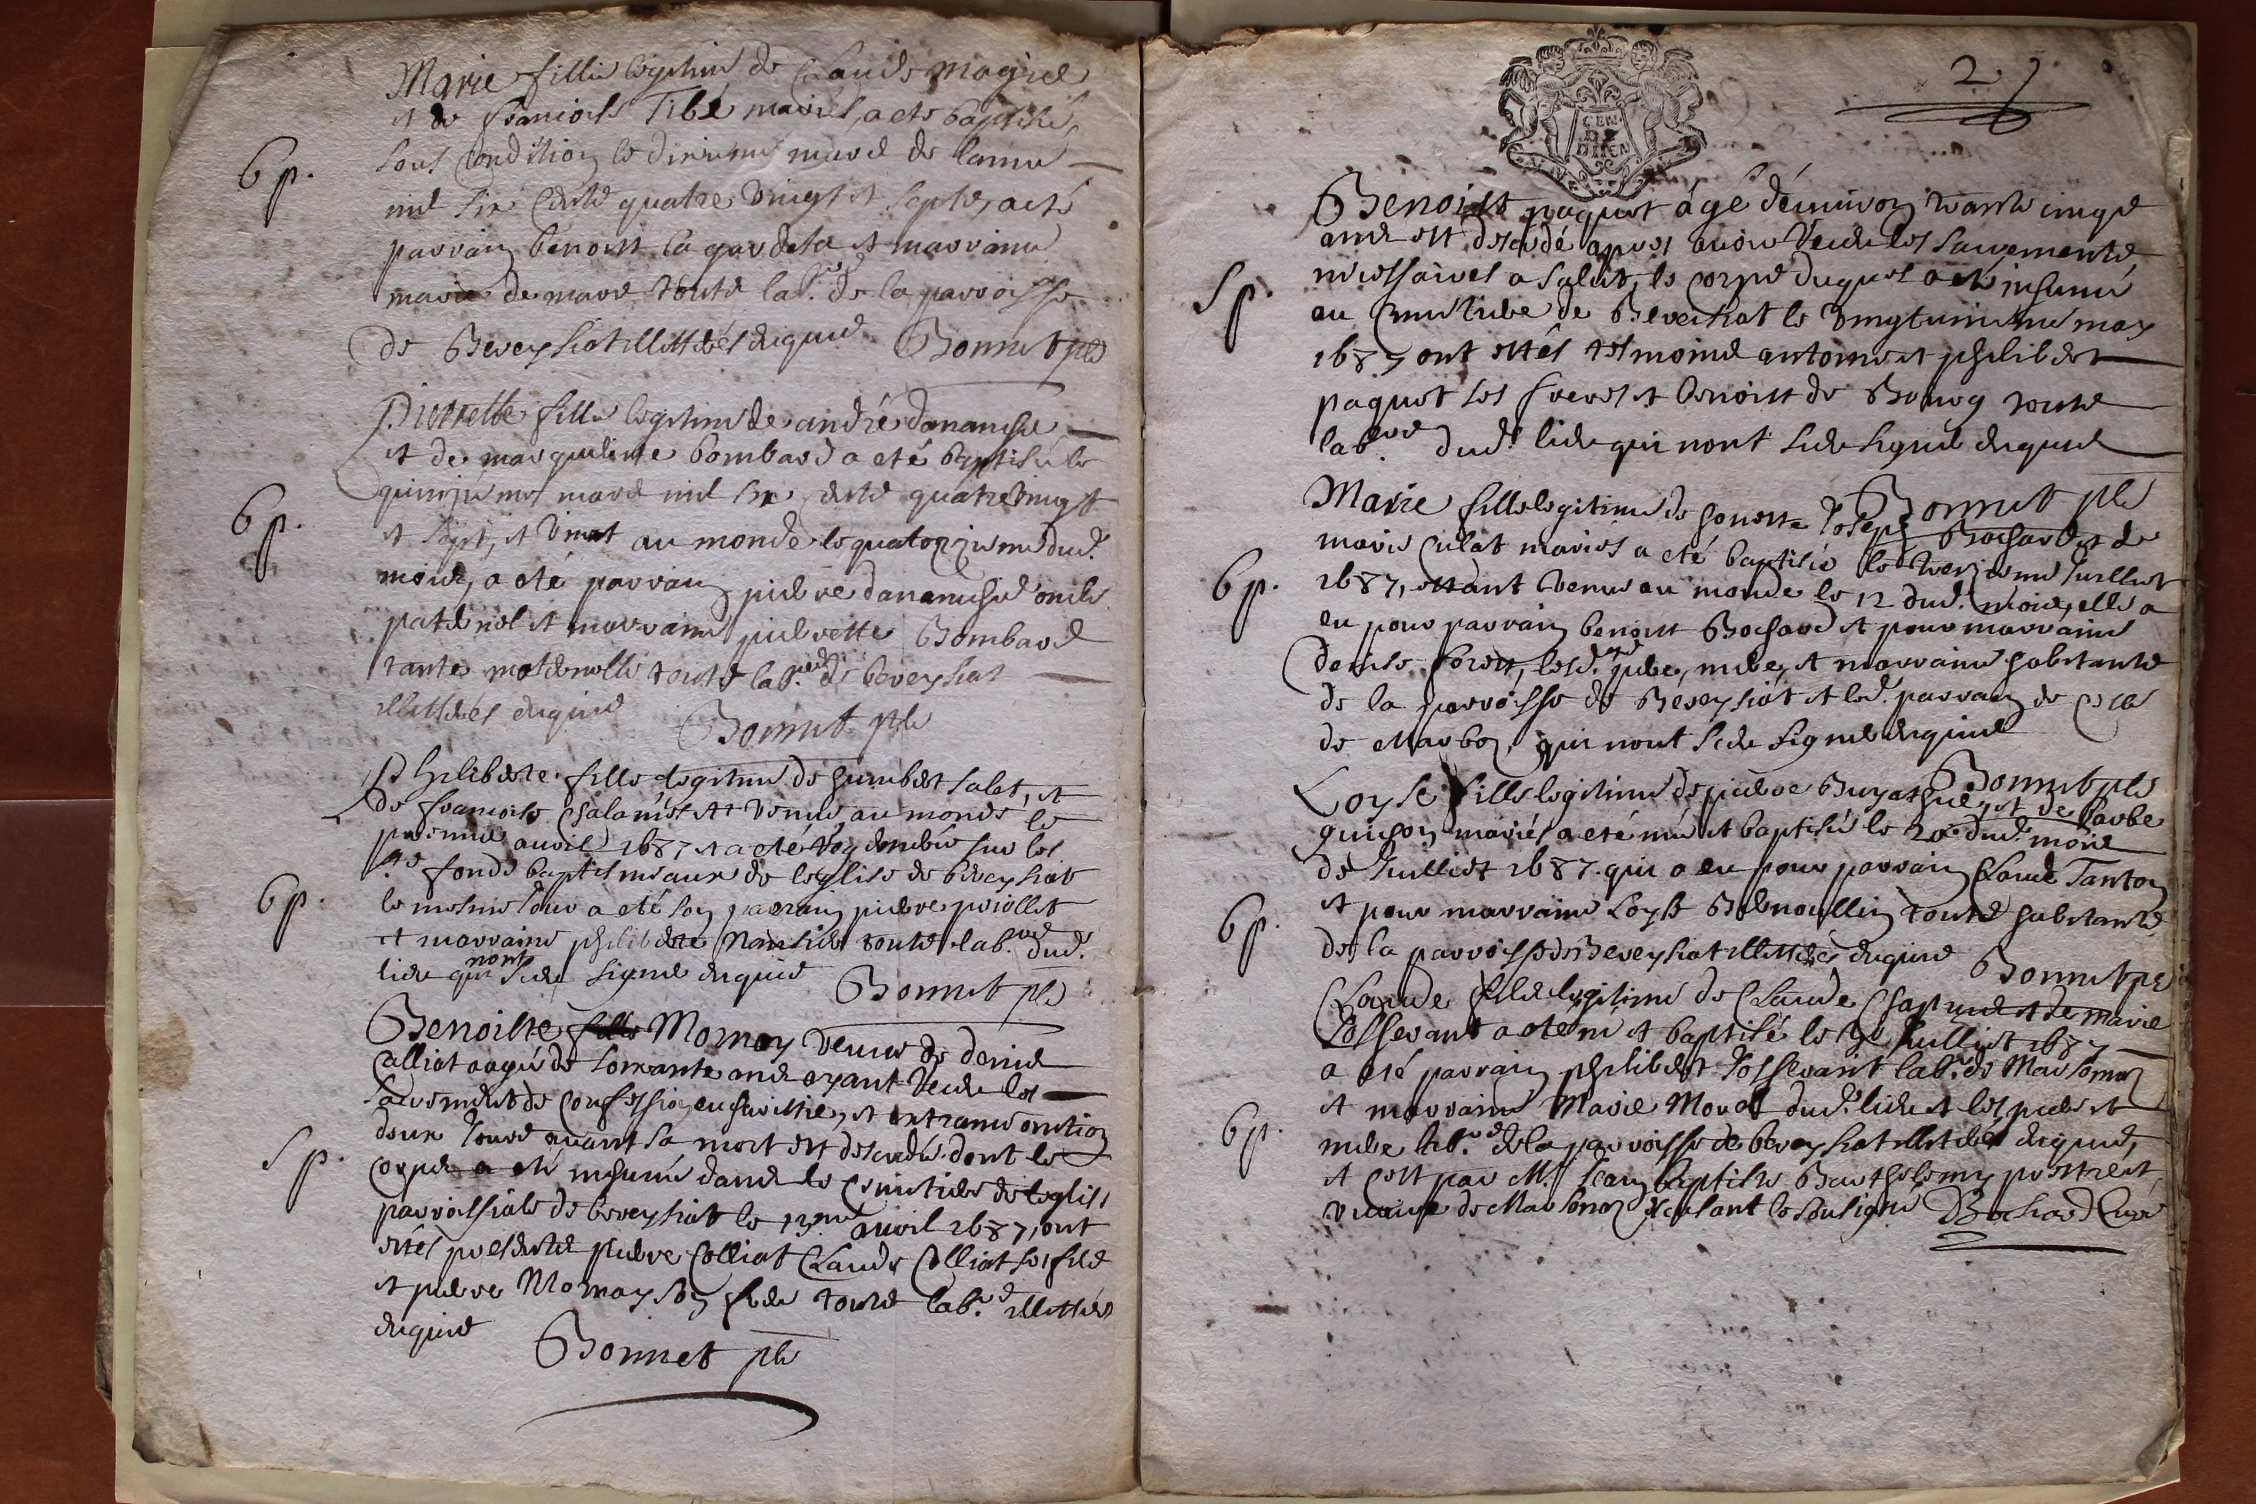 Marie fille legitime de Claude Magied
et de francoise Tibé mariés, a eté baptisée
6 p.
sous condition le dixieme mars de lannee
mil six cents quatre vingt et septs, a eté
parrain benoist la gardete et marraine
marie de mare touts lab.rs de la parroisse
de Bereysiat illitterés enquis Bonnet ptre
Pierrette fille legitime de andré dananche
et de marguerite bombard a eté baptisée le
quinzieme mars mil six cents quatre vingt
6 p.
et sept, et vient au monde le quatorzieme dud.
mois, a eté parrain pierre dananche oncle
paternel et marraine pierrette Bombard
tante maternelle touts lab.rs de bereysiat
illitterés enquis
Bonnet ptre
Philiberte fille legitime de humbert Salet, et
de francoise Chalamel est venue au monde le
premier avril 1687 et a eté sur les
fonds baptismaux de leglise de bereysiat
6 p.
le mesme jour a eté son parrain pierre priollet
et marraine philiberte touts lab.rs dud.
lieu qui nont sceu signer enquis Bonnet ptre
Benoiste fille Mornay veuve de denis
Colliat aagée de soixante ans ayant receu les
sacrements de confession, eucharistie, et extrame onction
deux jours avant sa mort est decedée dont le
S p.
corps a eté inhumé dans le cimetiere de leglise
parroissiale de bereysiat le 13me avril 1687, ont
estés presents pierre Colliat Claude Colliat ses fils
et pierre Mornay son frere touts lab.rs illitterés
enquis Bonnet ptre
2
GEN. DE DIION
Benoist paquet agé denviron trante cinq
ans est decedé apres avoir receu les sacrements
necessaires a salut, le corps duquel a eté inhumé
S p.
au cimetiere de Bereisiat le vingtunieme may
1687 ont estés tesmoins antoine et philibert
paquet ses freres et benoist de Bourg touts
lab.rs dud. lieu qui nont sceu signer enquis
Bonnet ptre
Marie fille legitime de honeste Joseph Bochard et de
marie Culat mariés a eté baptisée le treizieme Juillet
6 p.
1687, estant venue au monde le 12 dud. mois, elle a
eu pour parrain benoist Bochard et pour marraine
denise forest, lesd. pere, mere, et marraine habitants
de la parroisse de Bereysiat et led. parrain de celle
de Marboz, qui nont sceu signer enquis
Bonnet ptre
Loyse fille legitime de pierre Buyathier et de barbe
guichon mariés a eté née et baptisée le 20e dud. mois
de Juillet 1687 qui a eu pour parrain Claude Tanton
6 p.
et pour marraine Loyse Bernoullin touts habitants
de la parroisse de Bereysiat illitterés enquis
Bonnet ptre
Claude fils legitime de Claude et de marie
Josserant a eté né et baptisé le Juillet 1687
a eté parrain philibert Josserant lab.r de Marsonna
6 p.
et marraine Marie Morel dud. lieu et les pere et
mere lab.rs de la parroisse de bereysiat illitterés enquis,
et cest par M.re Jean baptiste Barthelemy prestre et
vicaire de Marsonna le soussigné Bochard Curé